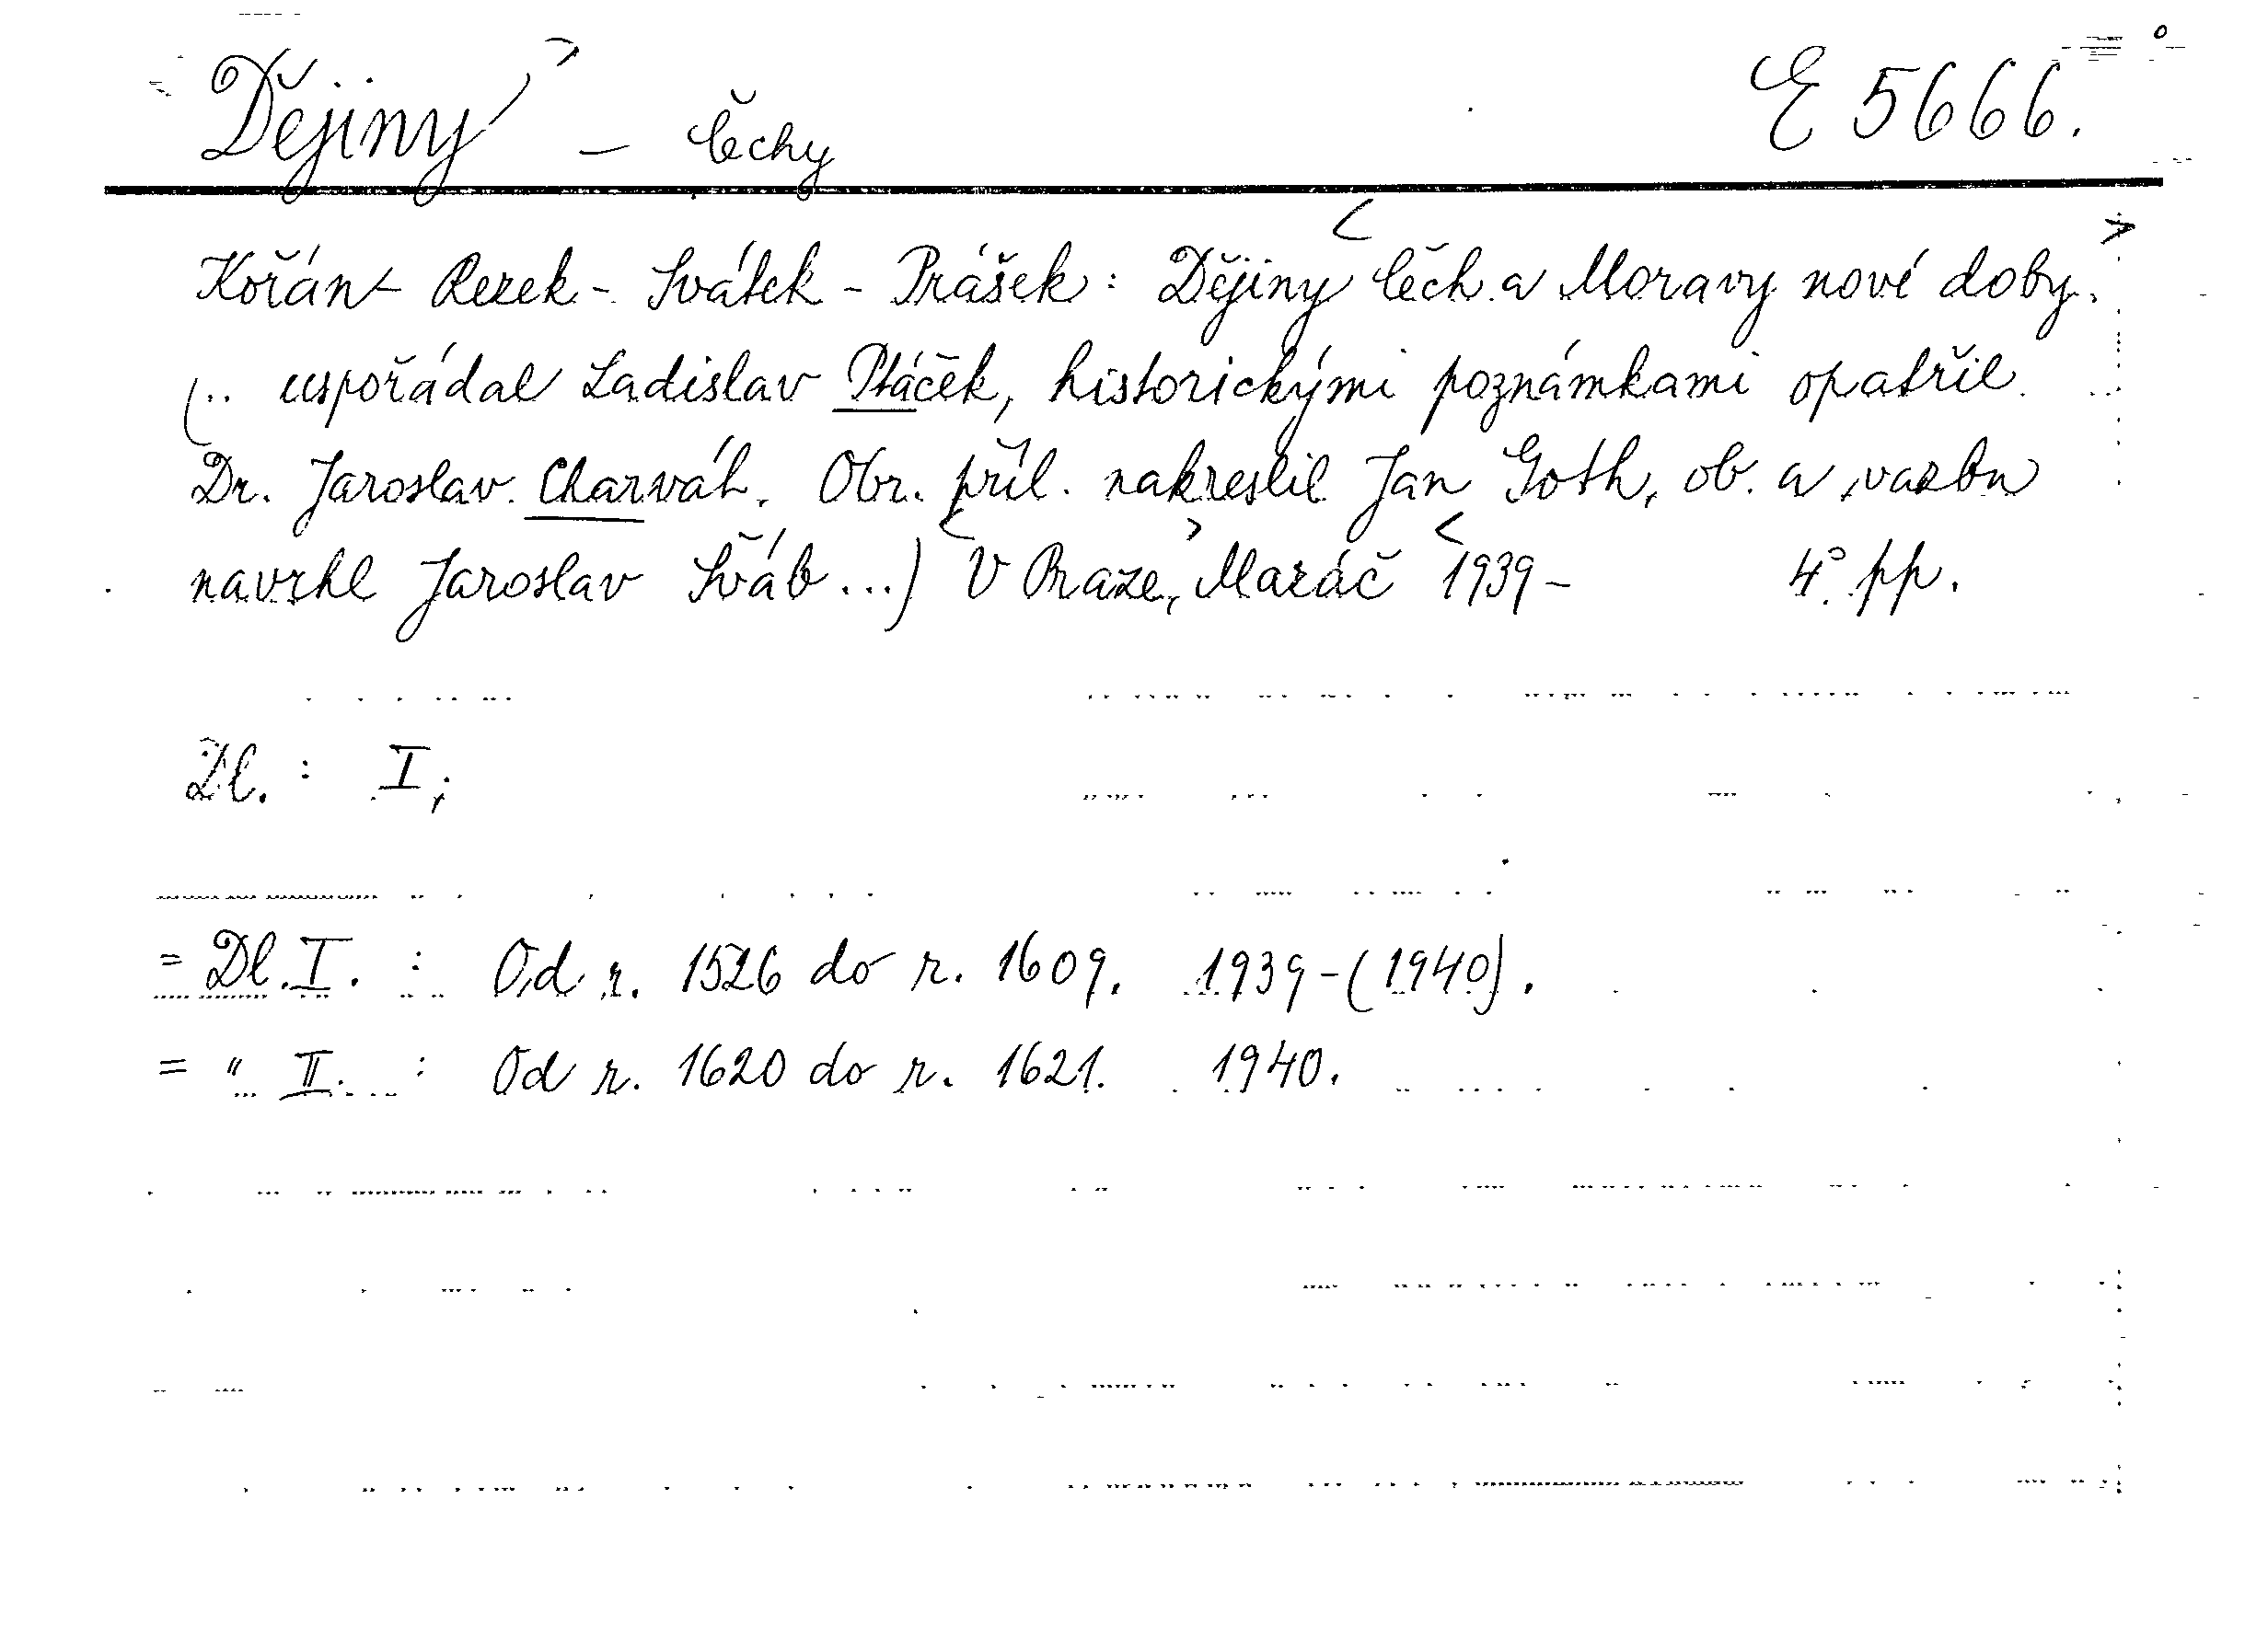 Dějiny – Čechy E 5666.
Kořán - Rezek - Svátek - Prášek: Dějiny Čech a Moravy nové doby.
(.. uspořádal Ladislav Ptáček, historickými poznámkami opatřil
Dr. Jaroslav Charvát. Obr. příl. nakreslil Jan Goth, ob. a vazbu
navrhl Jaroslav Šváb ...) V Praze, Mazáč 1939- 4° pp.
Dl. : I;
= Dl. I. : Od r. 1526 do r. 1609. 1939-(1940).
= " II. : Od r. 1620 do r. 1621. 1940.